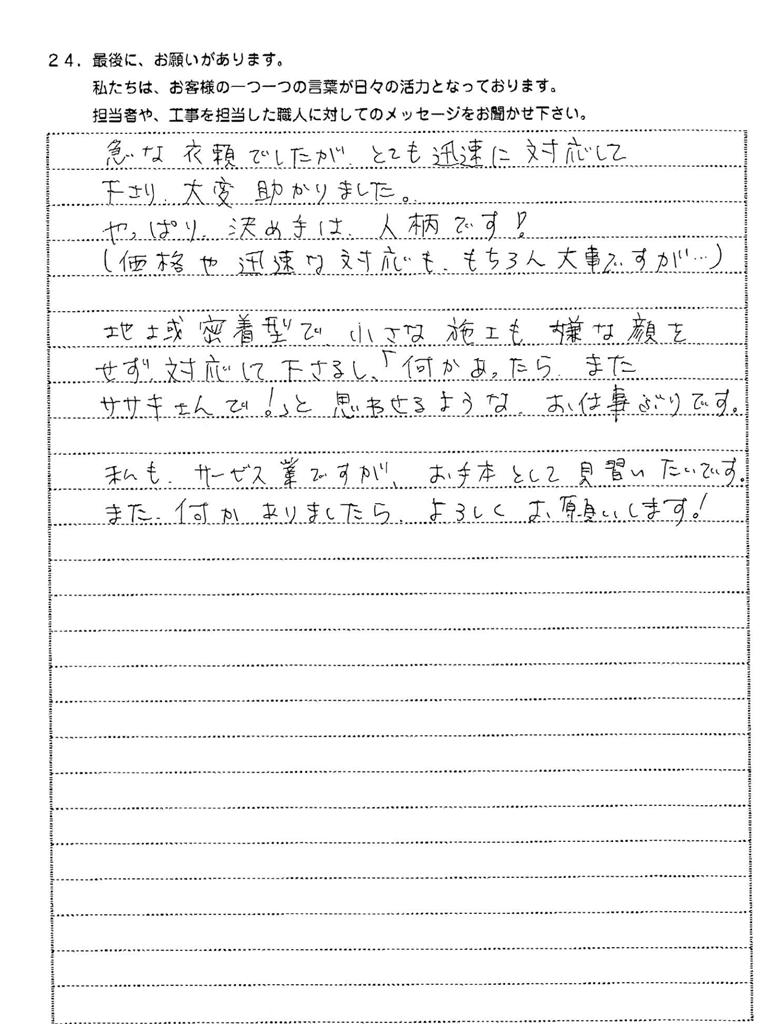 24. 最後に、お願いがあります。
私たちは、お客様の一つ一つの言葉が日々の活力となっております。
担当者や、工事を担当した職人に対してのメッセージをお聞かせ下さい。
急な衣頼でしたが、とても迅速に対応して
下さり、大変助かりました。
やっぱり、決め手は、人柄です!
(価格や迅速な対応も、もちろん大事ですが…)
地域密着型で、小さな施工も嫌な顔を
せず、対応して下さるし、「何かあったら、また
ササキさんで!」と思わせるような、お仕事ぶりです。
私も、サービス業ですが、お手本として見習いたいです。
また、何かありましたら、よろしくお願いします!